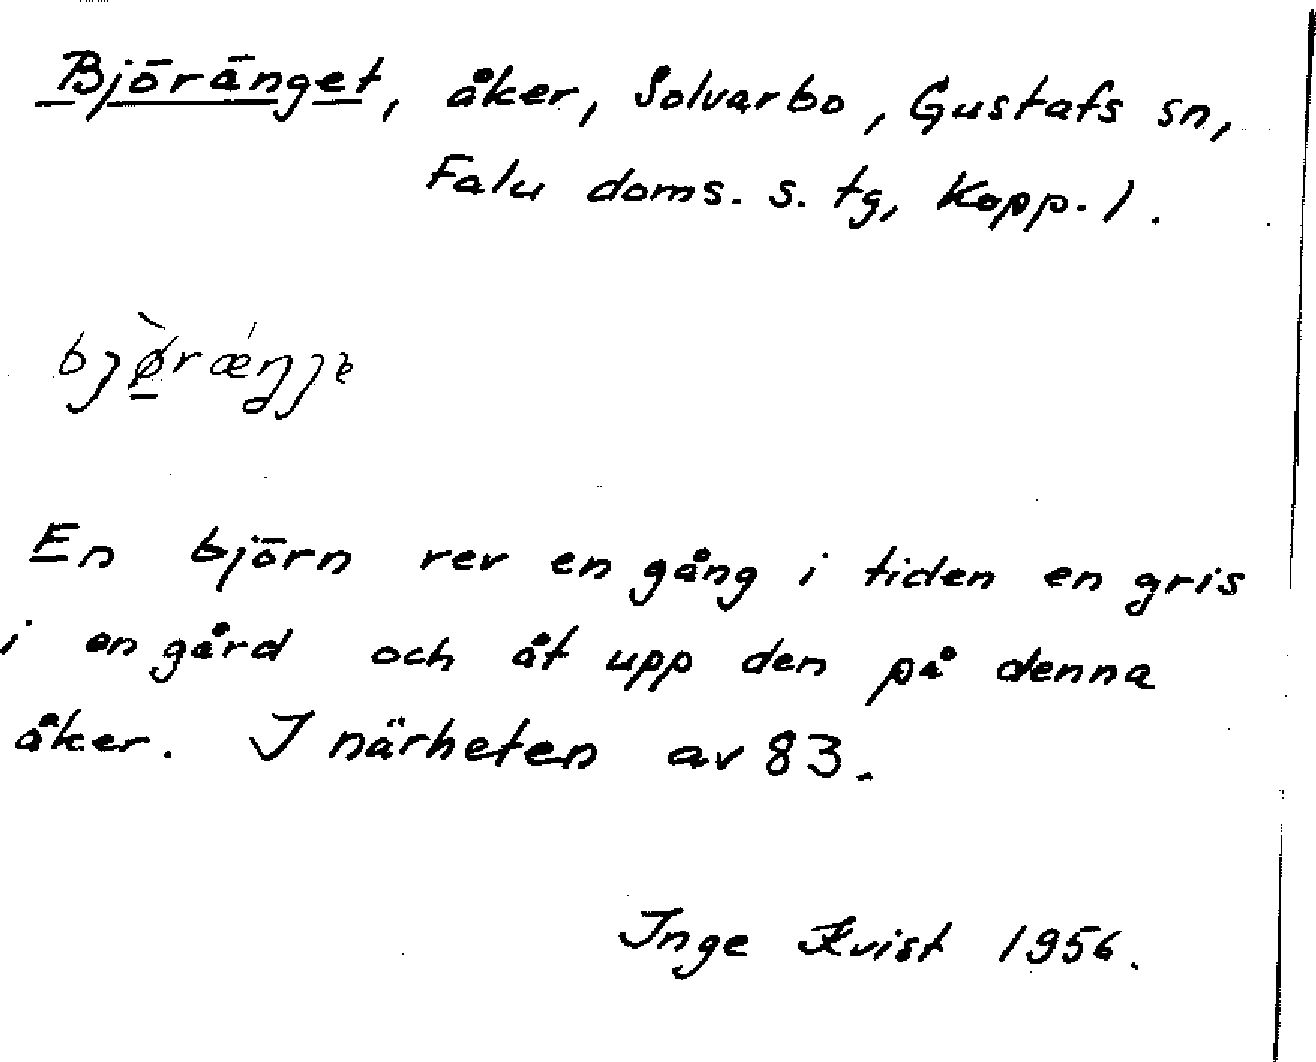 Björänget, åker, Solvarbo, Gustafs sn,
Falu doms. s. tg, Kopp. l.
bjø̠̀rǽŋjɐ
En björn rev en gång i tiden en gris
i en gård och åt upp den på denna
åker. I närheten av 83.
Inge Kvist 1956.